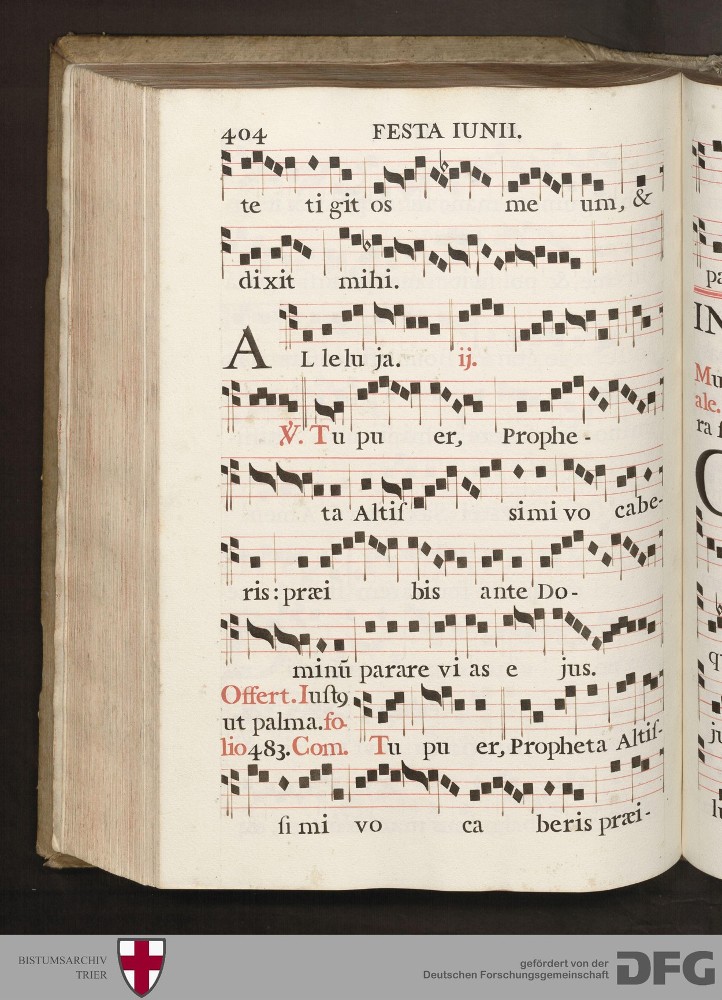 404 FESTA IUNII.
te ti git os me um, &
dixit mihi.
AL le lu ja. ij.
℣. Tu pu er, Prophe-
ta Altiſ simi vo cabe-
ris: præi bis ante Do-
minũ parare vi as e jus.
Offert. Iuſtꝰ
ut palma. fo-
lio 483. Com. Tu pu er, Propheta Altiſ-
ſi mi vo ca beris præi-
pa
IN
Mu
ale.
ra ſ
BISTUMSARCHIV
TRIER
gefördert von der
Deutschen Forschungsgemeinschaft
DFG